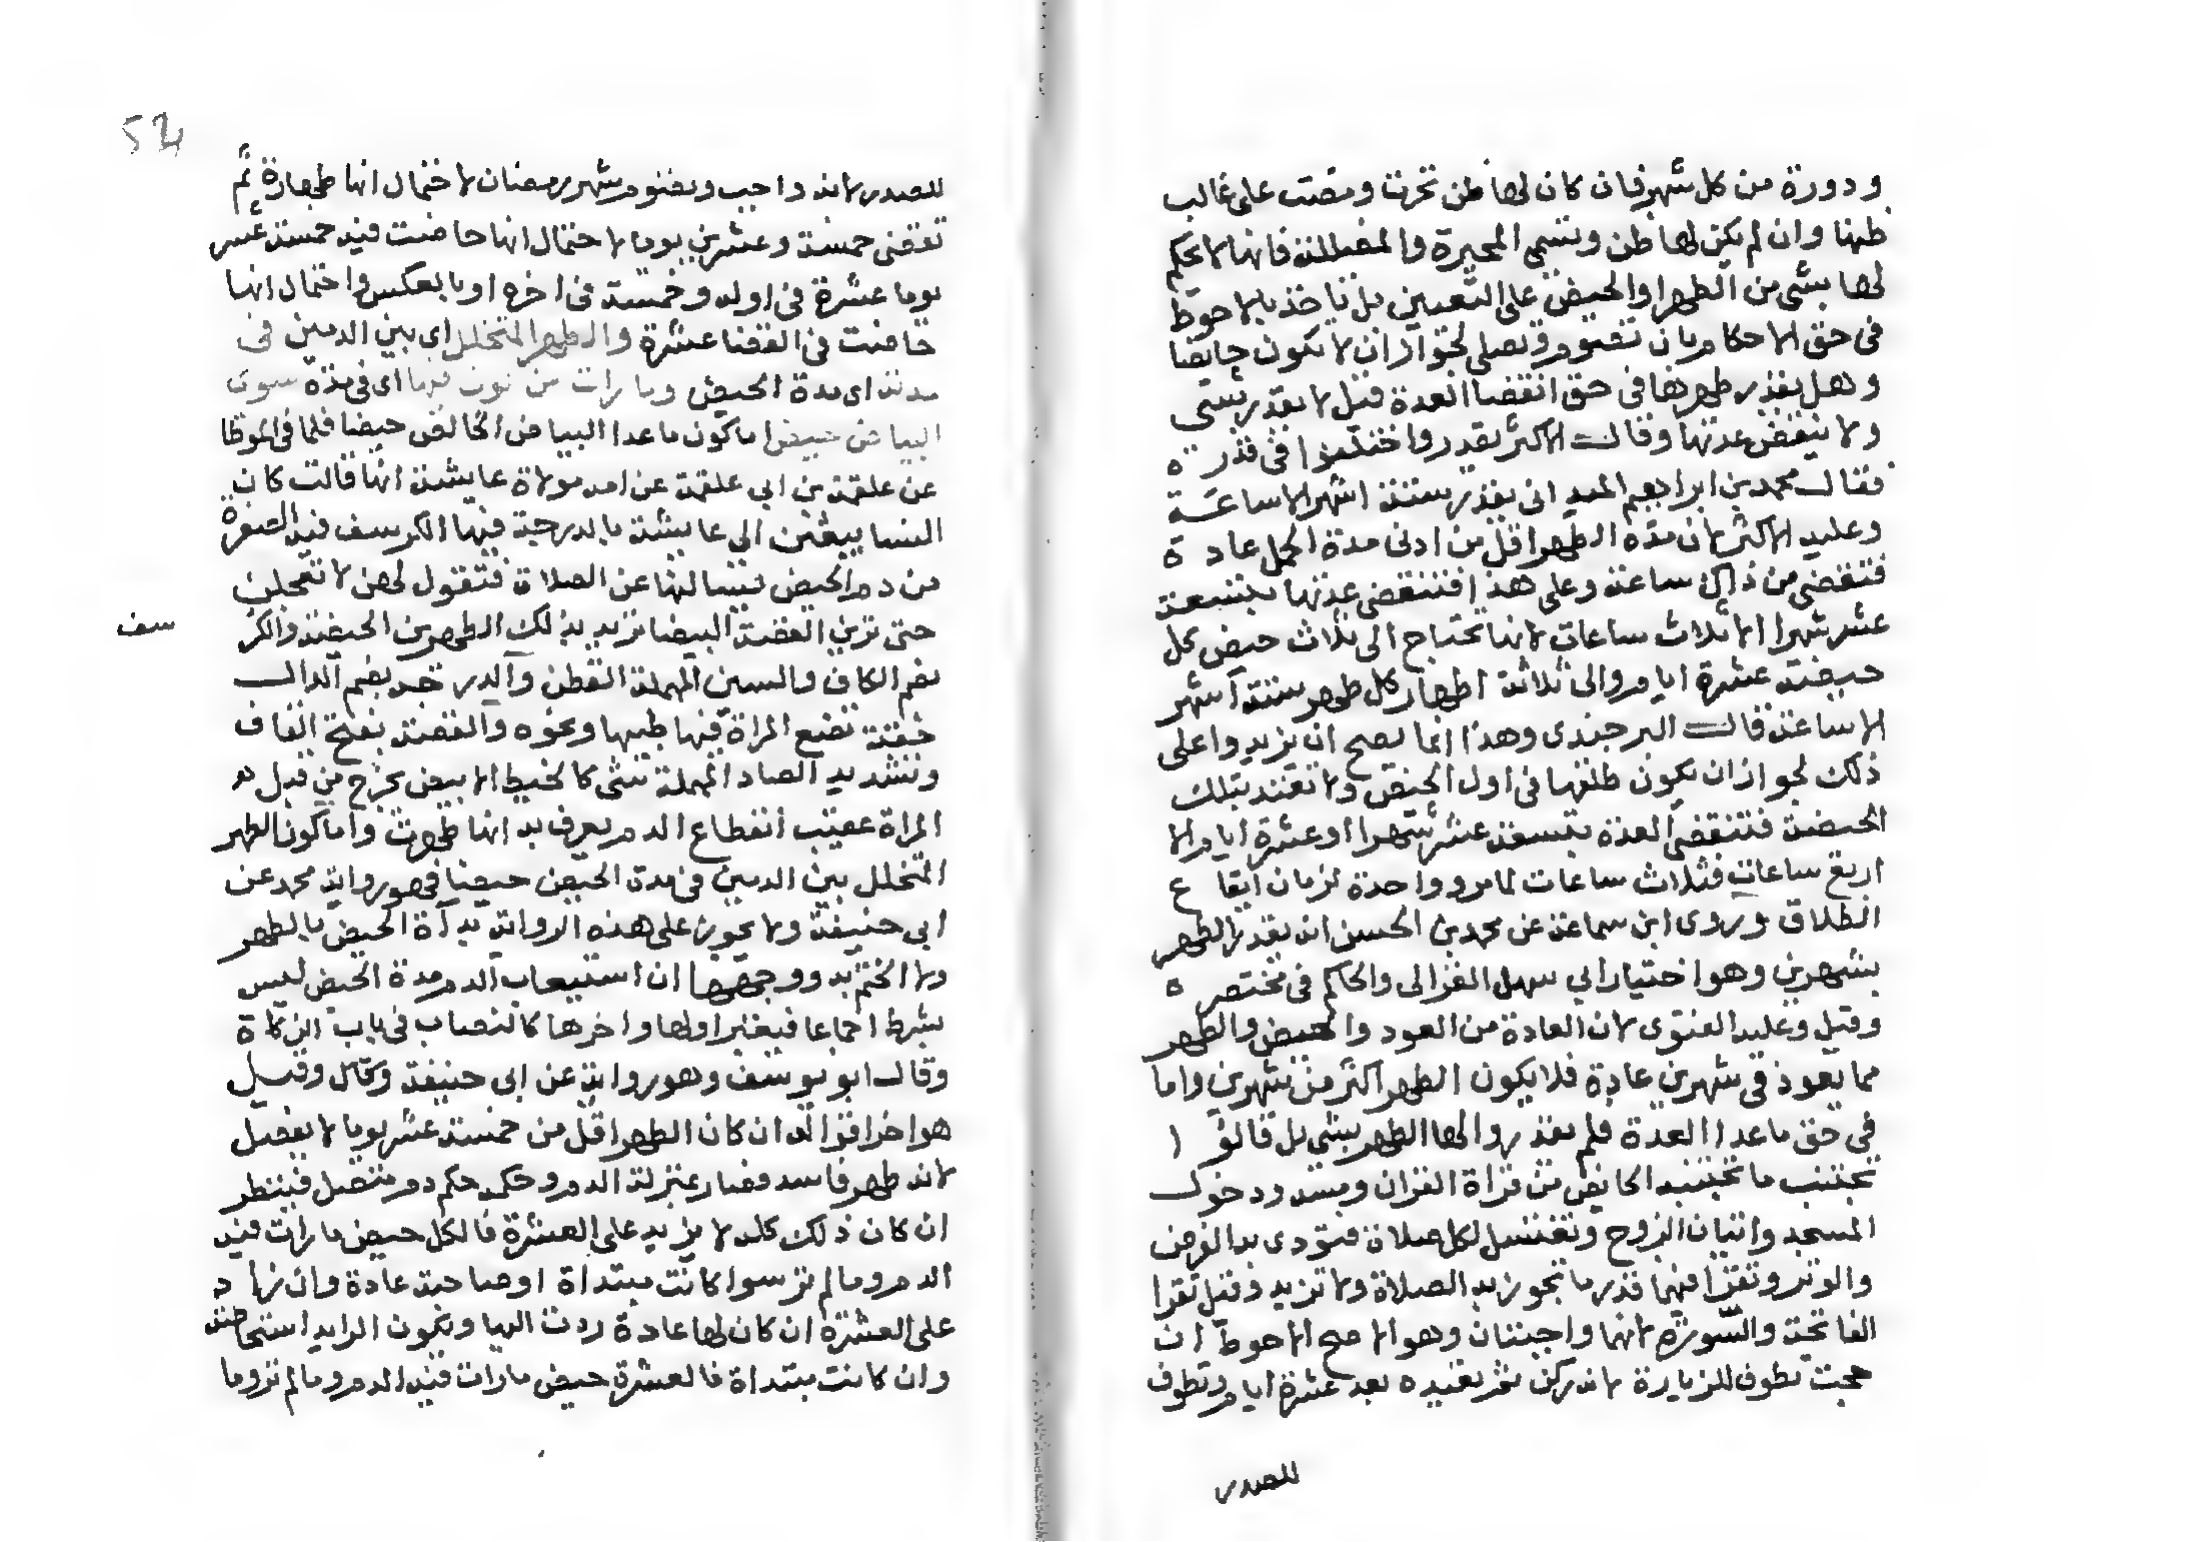 ودورة من كل شهر فان كان لها ظن تحرت ومضت على غالب
ظنها وان لم يكن لها ظن وتسمى المحيرة والمضللة فانها لا يحكم
لها بشى من الطهر والحيض على التعيين بل تاخذ بالاحوط
فى حق الاحكام بان تصوم وتصلى لجواز ان لا تكون حايضا
وهل يقدر طهرها فى حق انقضا العدة قيل لا يقدر بشى
ولا تنقضى عدتها وقال الاكثر يقدر واختلفوا فى قدره
فقال محمد بن ابراهيم الميدانى يقدر بستة اشهر الا ساعة
وعليه الاكثر لان مدة الطهر اقل من ادنى مدة الحمل عادة
فتنقضى من ذلك ساعة وعلى هذا فتنقضى عدتها بتسعة
عشر شهرا الا ثلاث ساعات لانها تحتاج الى ثلاث حيض كل
حيضة عشرة ايام والى ثلاثة اطهار كل طهر ستة اشهر
الا ساعة قال البرجندى وهذا انما يصح ان يزيد واعلى
ذلك لجواز ان يكون طلقها فى اول الحيض ولا تعتد بتلك
الحيضة فتنقضى العدة بتسعة عشر شهرا او عشرة ايام الا
اربع ساعات فثلاث ساعات لما مر وواحدة لزمان ايقاع
الطلاق وروى ابن سماعة عن محمد بن الحسن انه يقدر الطهر
بشهرين وهو اختيار ابي سهل الغزالى والحاكم فى مختصره
وقيل وعليه الفتوى لان العادة من العود والحيض والطهر
مما يعود فى شهرين عادة فلا يكون الطهر اكثر من شهرين واما
فى حق ما عدا العدة فلم يقدروا لها الطهر بشى بل قالوا
تجتنب ما تجتنبه الحايض من قراة القران ومسه ودخول
المسجد واتيان الزوج وتغتسل لكل صلاة فتودى به الفرض
والوتر وتقرا فيهما قدر ما تجوز به الصلاة ولا تزيد وقيل تقرا
الفاتحة والسورة لانهما واجبتان وهو الاصح الاحوط ان
حجت تطوف للزيارة لانه ركن ثم تعيده بعد عشرة ايام وتطوف
للصدر
للصدر لانه واجب وتصوم شهر رمضان لاحتمال انها طهارة ثم
تقضى خمسة وعشرين يوما لاحتمال انها حاضت فيه خمسة عشر
يوما عشرة فى اوله وخمسة فى اخره او بالعكس واحتمال انها
حاضت فى القضا عشرة والطهر المتخلل اى بين الدمين فى
مدته اى مدة الحيض وما رات من لون فيها اى فى مدة سوى
البياض حيض اما كون ما عدا البياض الخالص حيضا فلما فى الموطا
عن علقمة بن ابي علقمة عن امه مولاة عايشة انها قالت كان
النسا يبعثن الى عايشة بالدرجة فيها الكرسف فيه الصفرة
من دم الحيض يسالنها عن الصلاة فتقول لهن لا تعجلن
حتى ترين القصة البيضا تريد بذلك الطهر من الحيضة والكر
سف
بضم الكاف والسين المهملة القطن والدرجة بضم الدال
خفة تضع المراة فيها طيبها ونحوه والقصة بفتح القاف
وتشديد الصاد المهملة شى كالخيط الابيض يخرج من قبل
المراة عقيب انقطاع الدم يعرف به انها طهرت واما كون الطهر
المتخلل بين الدمين فى مدة الحيض حيضا فهو رواية محمد عن
ابى حنيفة ولا يجوز على هذه الرواية بداة الحيض بالطهر
ولا الختم به ووجهها ان استيعاب الدم مدة الحيض ليس
بشرط اجماعا فيعتبر اولها واخرها كالنصاب فى باب الزكاة
وقال ابو يوسف وهو رواية عن ابى حنيفة وقال وقيل
هو اخر اقواله ان كان الطهر اقل من خمسة عشر يوما لا يفصل
لانه طهر فاسد فصار بمنزلة الدم وحكمه حكم دم متصل فينظر
ان كان ذلك كله لا يزيد على العشرة فالكل حيض ما رات فيه
الدم وما لم تر سوا كانت مبتداة او صاحبة عادة وان زاد
على العشرة ان كان لها عادة ردت اليها وتكون الزايد استحاضة
وان كانت مبتداة فالعشرة حيض ما رات فيه الدم وما لم تر وما